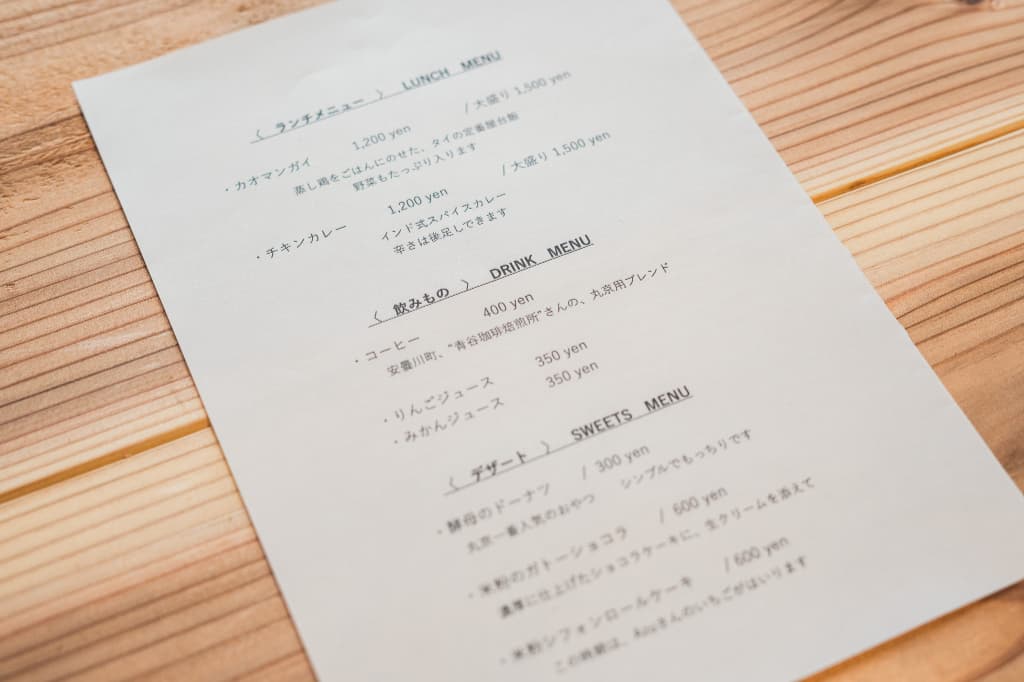 〈 ランチメニュー 〉 LUNCH MENU
・カオマンガイ 1,200 yen / 大盛り 1,500 yen
蒸し鶏をごはんにのせた、タイの定番屋台飯
野菜もたっぷり入ります
・チキンカレー 1,200 yen / 大盛り 1,500 yen
インド式スパイスカレー
辛さは後足しできます
〈 飲みもの 〉 DRINK MENU
・コーヒー 400 yen
安曇川町、“青谷珈琲焙煎所”さんの、丸京用ブレンド
・りんごジュース 350 yen
・みかんジュース 350 yen
〈 デザート 〉 SWEETS MENU
・酵母のドーナツ / 300 yen
丸京一番人気のおやつ シンプルでもっちりです
・米粉のガトーショコラ / 600 yen
濃厚に仕上げたショコラケーキに、生クリームを添えて
・米粉シフォンロールケーキ / 600 yen
この時期は、さんのいちごがはいります